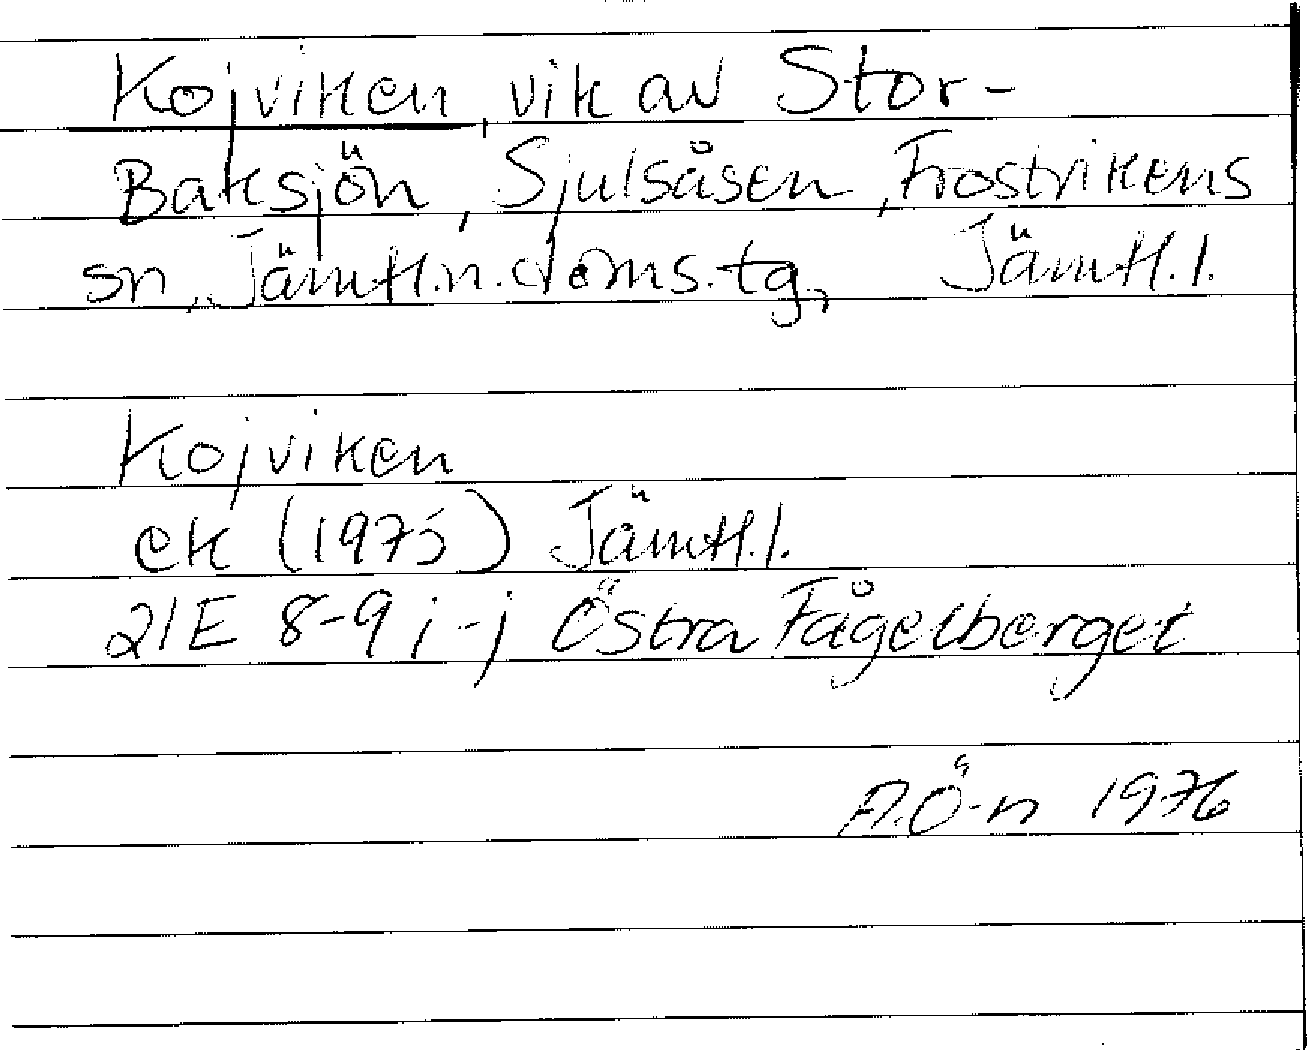 Kojviken, vik av Stor-
Baksjön, Sjulsåsen, Frostvikens
sn, Jämtl.n.doms.tg, Jämtl.l.
Kojviken
ek (1975) Jämtl.l.
21E 8-9 i-j Östra Fågelberget
A.Ö-n 1976